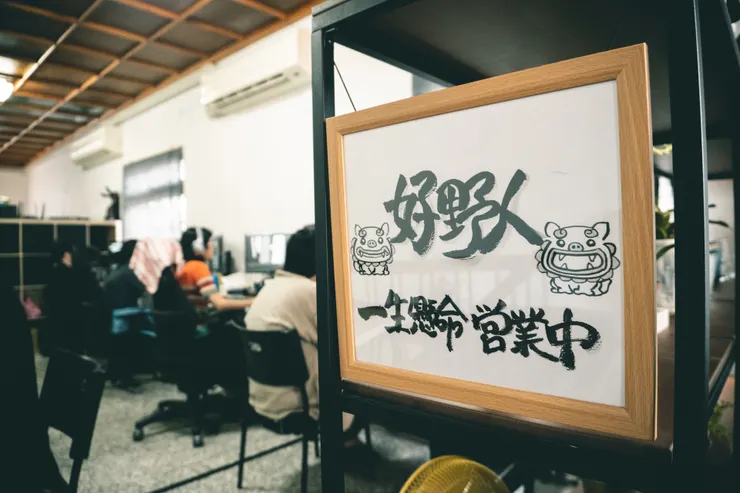 好野人
一生懸命 営業中